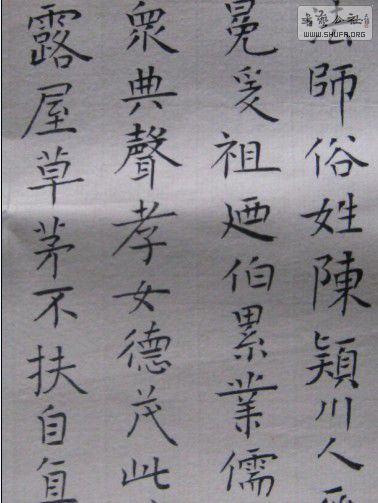 師俗姓陳穎川人
冕爰祖迺伯累業儒
衆典聲孝女德茂此
露屋草茅不扶自直
書藝公社
WWW.SHUFA.ORG